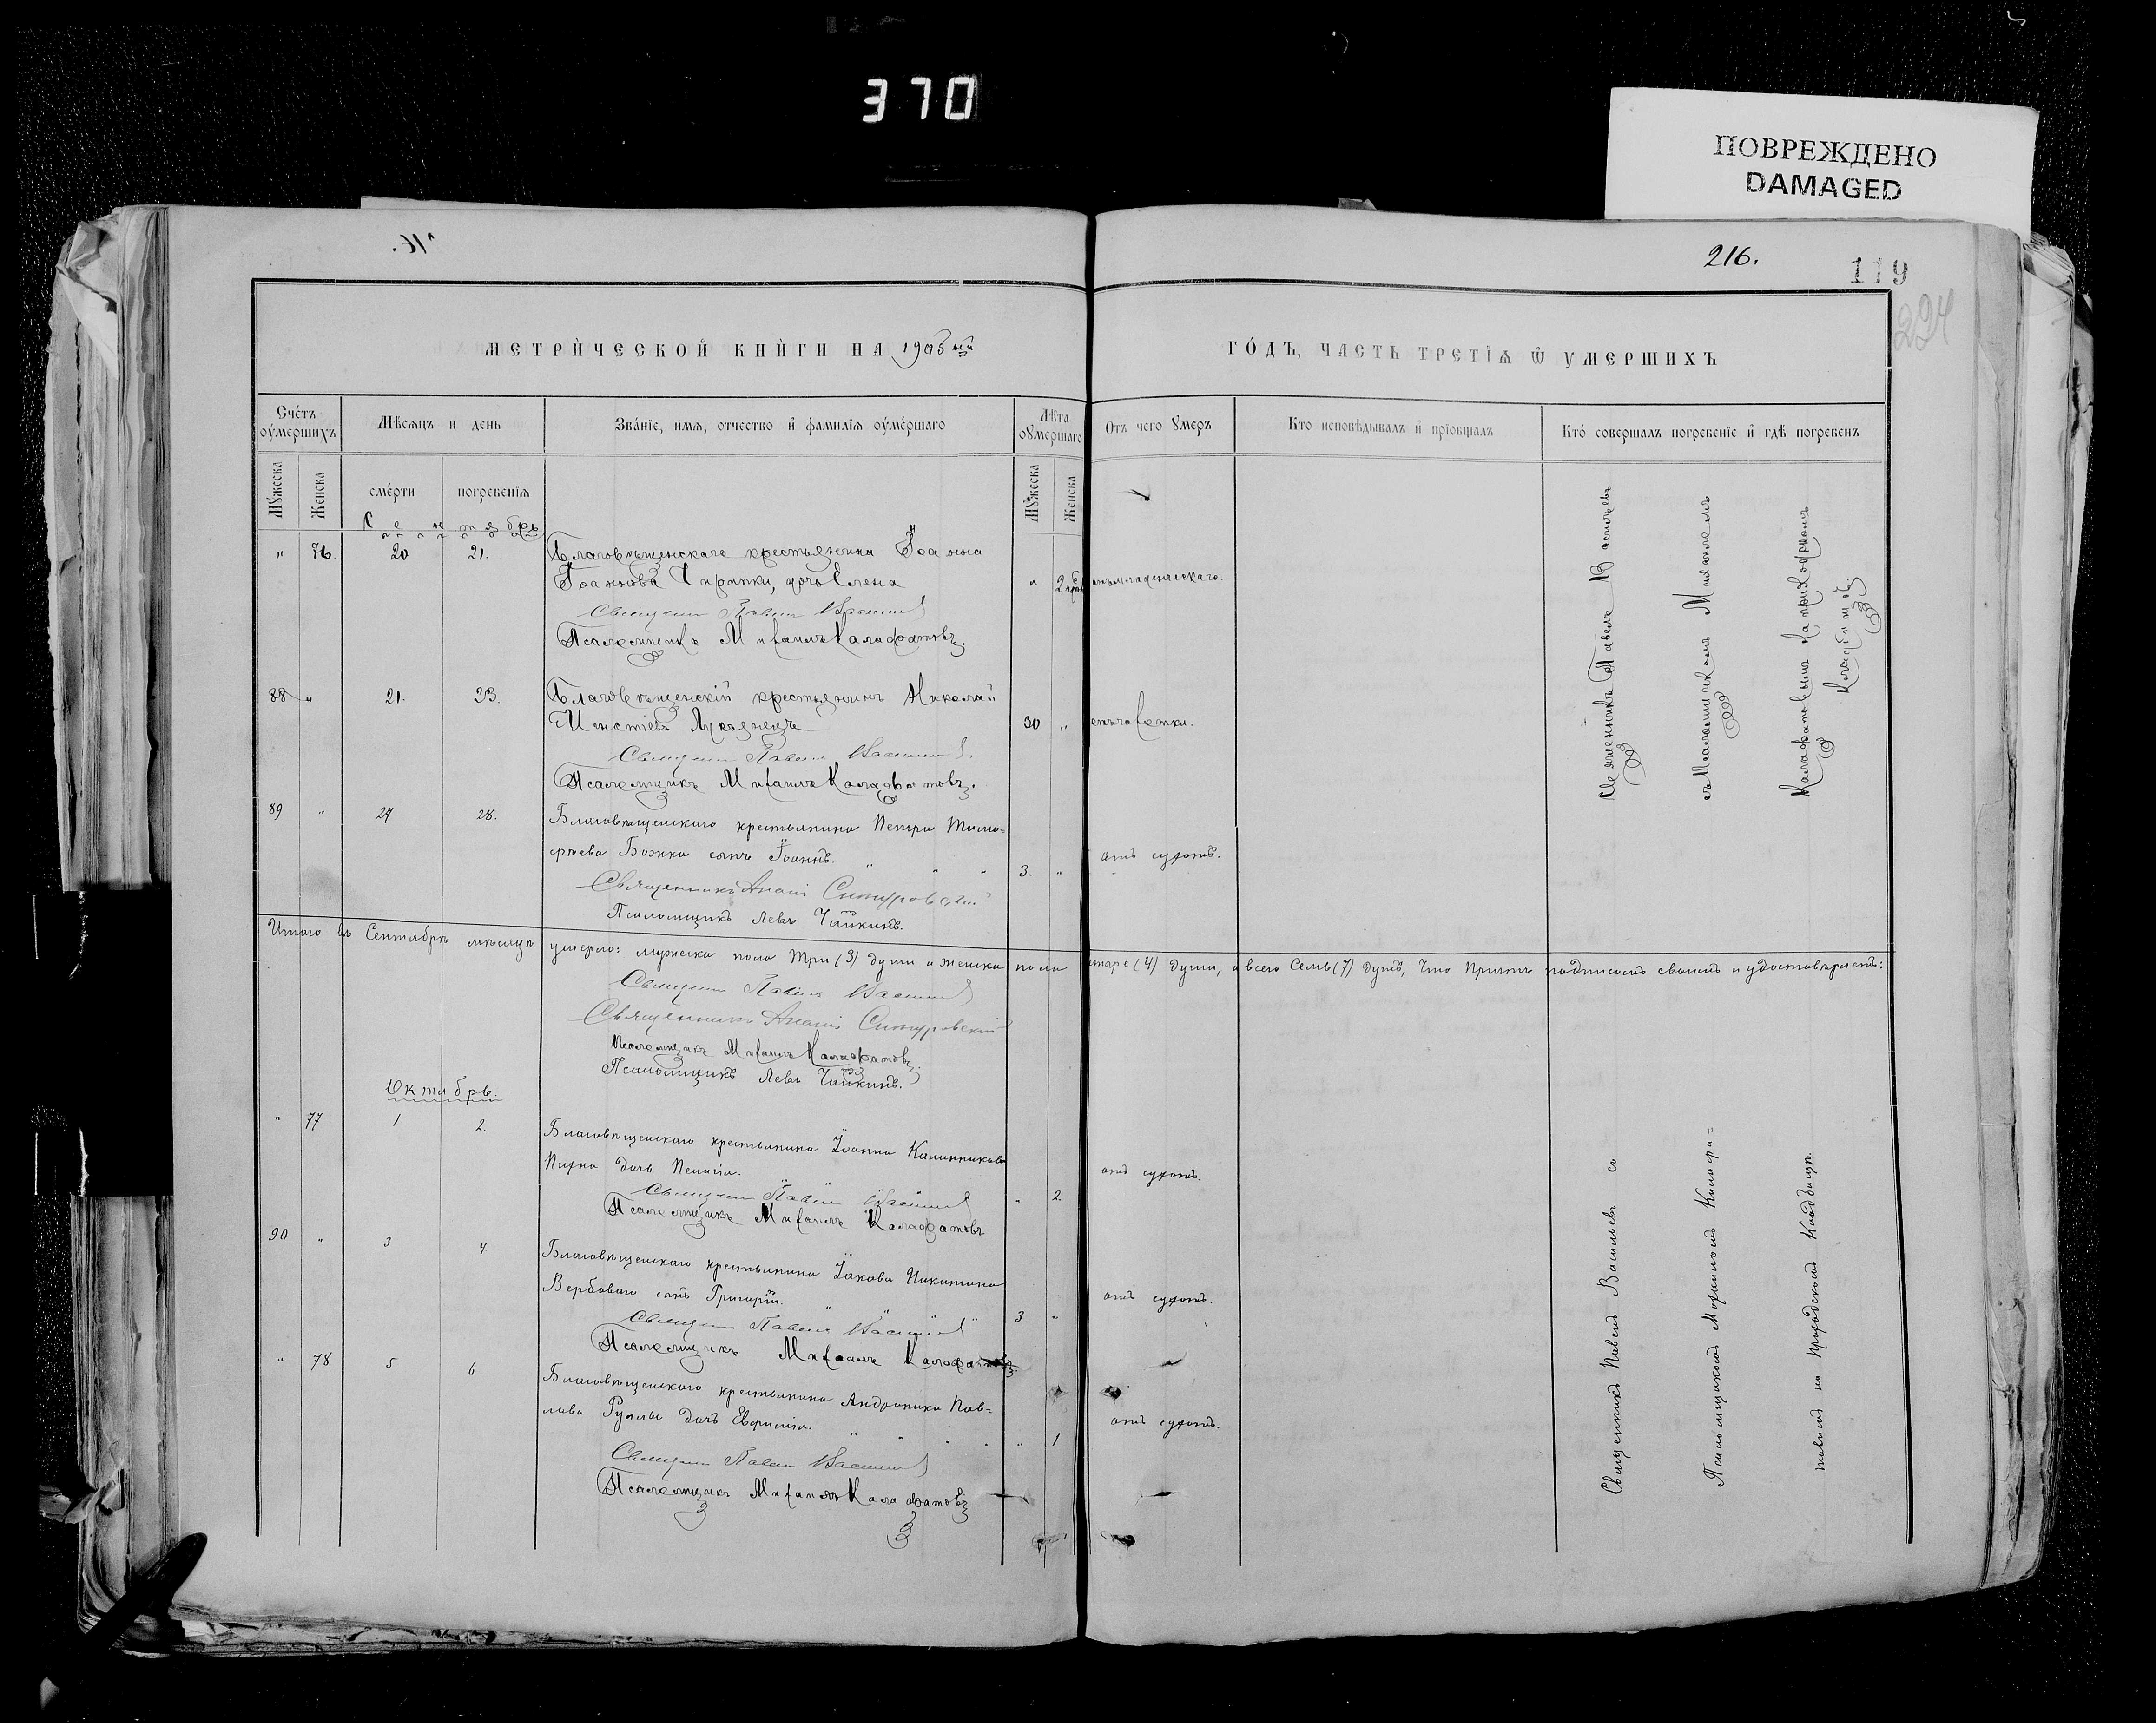 370
ПОВРЕЖДЕНО
DAMAGED
216.
119
224
МЕТРИЧЕСКОЙ КНИГИ НА 1905 ый
ГОДЪ, ЧАСТЬ ТРЕТІЯ Ѿ УМЕРШИХЪ
Счетъ оумершихъ
Мѣсяцъ и день
Званіе, имя, отчество и фамилія оумершаго
Лѣта оумершаго
Отъ чего умеръ
Кто исповѣдывалъ и пріобщалъ
Кто совершалъ погребеніе и гдѣ погребенъ
Мужеска
Женска
смерти
погребенія
Мужеска
Женска
Сентябрь
" 76. 20 21. Благовѣщенскаго крестьянина Іоанна
Іоаннова дочь Елена
" 2 младенческаго.
Священникъ Павелъ Васильевъ
Псаломщикъ Михаилъ Калафатовъ.
88 " 21. 23. Благовѣщенскій крестьянинъ Николай
Лукьянецъ
30 " отъ чахотки.
Священникъ Павелъ Васильевъ
Псаломщикъ Михаилъ Калафатовъ.
89 " 27 28. Благовѣщенскаго крестьянина Петра Тимо=
фѣева Божка сынъ Іоаннъ.
3. " отъ сухотъ.
Священникъ Ананій
Псаломщикъ Левъ Чайкинъ.
Священникъ Павелъ Васильевъ
съ Псаломщикомъ Михаиломъ
Калафатовымъ на приходскомъ
кладбищѣ
Итого въ Сентябрѣ мѣсяцѣ умерло: мужеска пола три (3) души а женска пола четыре (4) души, а всего семь (7) душъ, что причтъ подписомъ своимъ и удостовѣряетъ:
Священникъ Павелъ Васильевъ
Священникъ Ананій
Псаломщикъ Михаилъ Калафатовъ
Псаломщикъ Левъ Чайкинъ.
Октябрь.
" 77 1 2. Благовѣщенскаго крестьянина Іоанна Калинникова
дочь Пелагія.
" 2. отъ сухотъ.
Священникъ Павелъ Васильевъ
Псаломщикъ Михаилъ Калафатовъ
90 " 3 4 Благовѣщенскаго крестьянина Іакова Никитина
Вербоваго сынъ Григорій.
3 " отъ сухотъ.
Священникъ Павелъ Васильевъ
Псаломщикъ Михаилъ Калафатовъ
" 78 5 6 Благовѣщенскаго крестьянина Андроника Пав=
лова дочь Евфимія.
" 1 отъ сухотъ.
Священникъ Павелъ Васильевъ
Псаломщикъ Михаилъ Калафатовъ
Священникъ Павелъ Васильевъ съ
Псаломщикомъ Михаиломъ Калафа=
товымъ на приходскомъ кладбищѣ.